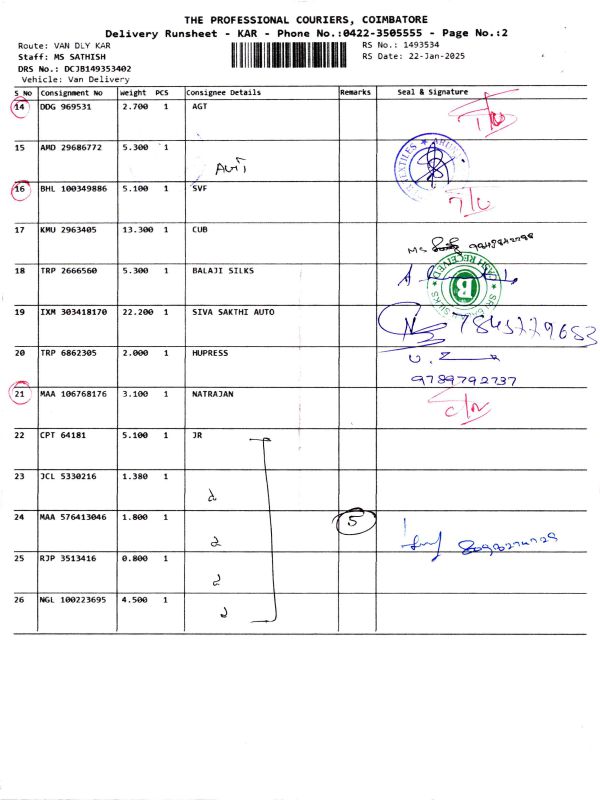 THE PROFESSIONAL COURIERS, COIMBATORE
Delivery Runsheet - KAR - Phone No.:0422-3505555 - Page No.:2
Route: VAN DLY KAR
RS No.: 1493534
Staff: MS SATHISH
RS Date: 22-Jan-2025
DRS No.: DCJB149353402
Vehicle: Van Delivery
S_No Consignment No Weight PCS Consignee Details Remarks Seal & Signature
14 DDG 969531 2.700 1 AGT
15 AMD 29686772 5.300 1
16 BHL 100349886 5.100 1 SVF
17 KMU 2963405 13.300 1 CUB
18 TRP 2666560 5.300 1 BALAJI SILKS
19 IXM 303418170 22.200 1 SIVA SAKTHI AUTO
7845779683
20 TRP 6862305 2.000 1 HUPRESS
9789792737
21 MAA 106768176 3.100 1 NATRAJAN
22 CPT 64181 5.100 1 JR
23 JCL 5330216 1.380 1
24 MAA 576413046 1.800 1 5
25 RJP 3513416 0.800 1
26 NGL 100223695 4.500 1